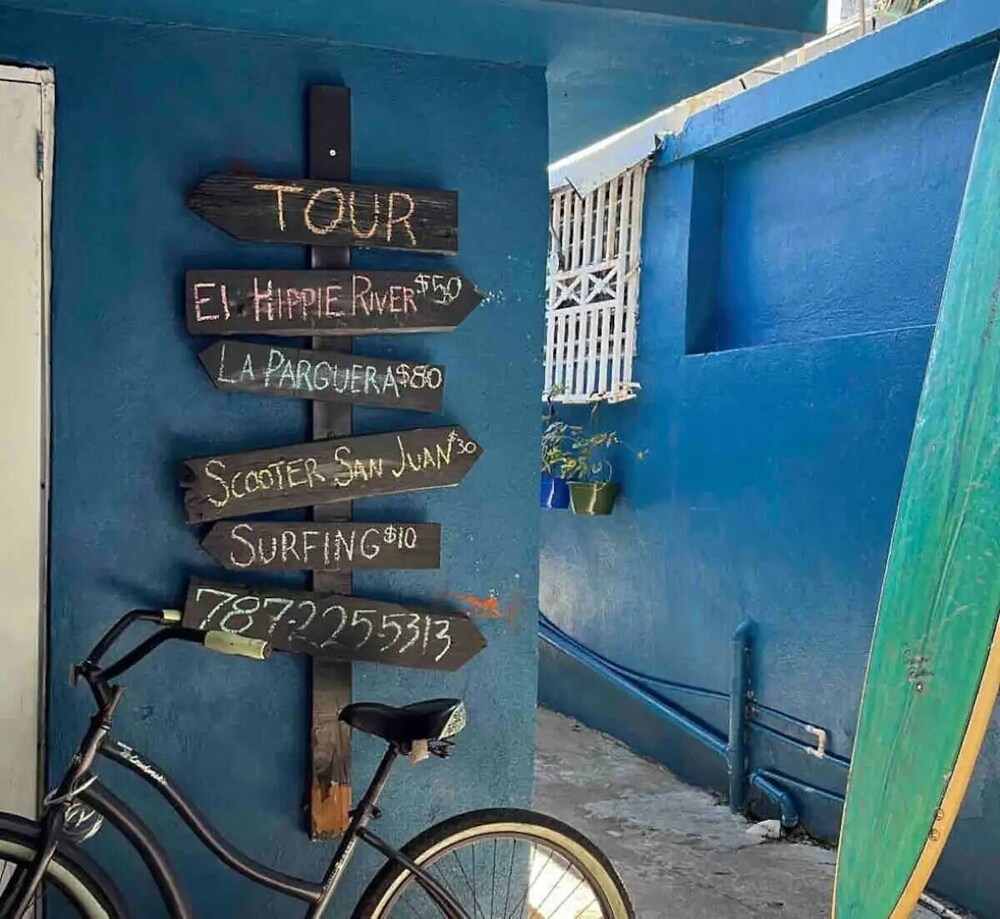 TOUR
El HIPPIE RIVER $50
LA PARGUERA $80
SCOOTER SAN JUAN $30
SURFING $10
787-225-5313